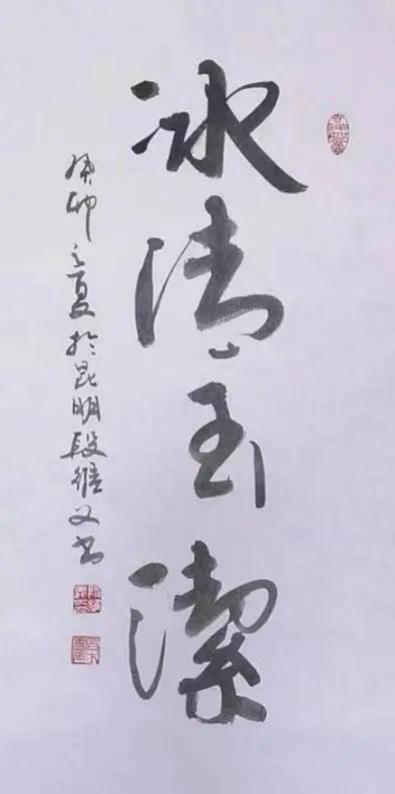 冰清玉潔
癸卯之夏於昆明段継文书